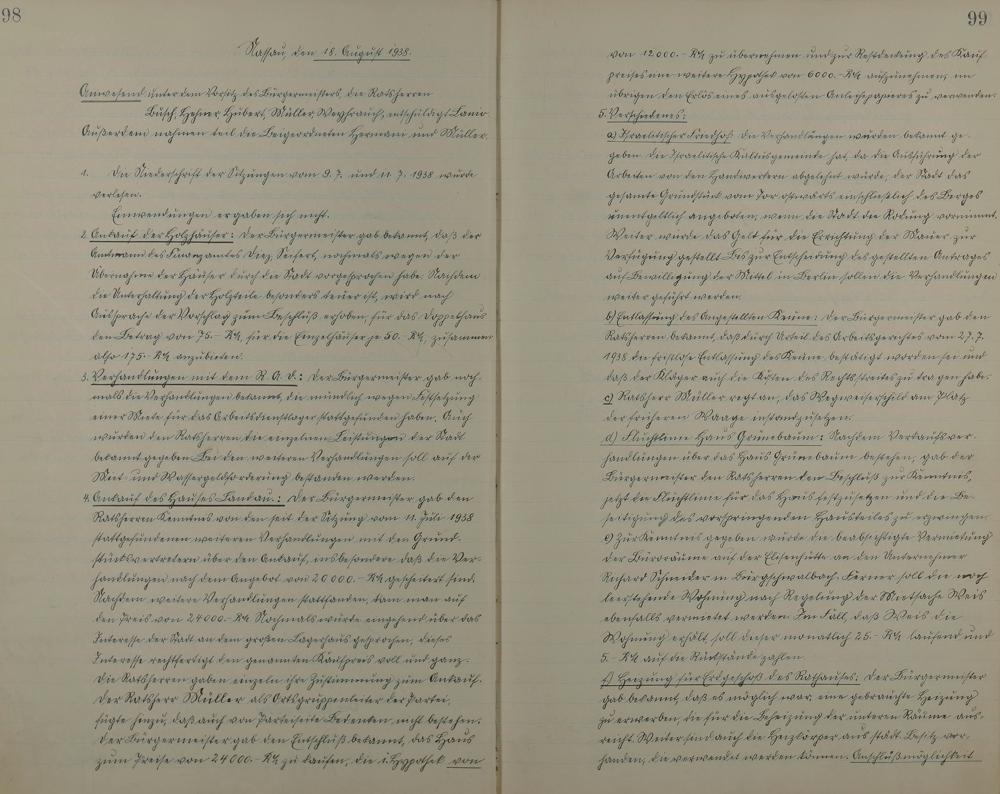 98
Nassau, den 18. August 1938.
Anwesend unter dem Vorsitz des Bürgermeisters, die Ratsherren
Busch, Hehner, Hubert, Müller, Weyhrauch, entschuldigt Lanio
Außerdem nahmen teil die Beigeordneten Hermann und Müller.
1. Die Niederschrift der Sitzungen vom 9.7. und 11.7.1938 wurde
verlesen.
Einwendungen ergaben sich nicht.
2. Ankauf der Holzhäuser: Der Bürgermeister gab bekannt, daß der
Amtmann des Finanzamtes Diez, Seifert, nochmals wegen der
Übernahme der Häuser durch die Stadt vorgesprochen habe. Nachdem
die Unterhaltung der Holzteile besonders teuer ist, wird nach
Aussprache der Vorschlag zum Beschluß erhoben, für das Doppelhaus
den Betrag von 75.- RM, für die Einzelhäuser je 50.- RM, zusammen
also 175.- RM anzubieten.
3. Verhandlungen mit dem R.A.D.: Der Bürgermeister gab noch-
mals die Verhandlungen bekannt, die mündlich wegen Festsetzung
einer Miete für das Arbeitsdienstlager stattgefunden haben. Auch
wurden den Ratsherren die einzelnen Leistungen der Stadt
bekannt gegeben. Bei den weiteren Verhandlungen soll auf der
Miet- und Wassergeldforderung bestanden werden.
4. Ankauf des Hauses Landau.: Der Bürgermeister gab den
Ratsherren Kenntnis von den seit der Sitzung vom 11. Juli 1938
stattgefundenen weiteren Verhandlungen mit den Grund-
stücksvertretern über den Ankauf, insbesondere daß die Ver-
handlungen nach dem Angebot von 20000.- RM gescheitert sind.
Nachdem weitere Verhandlungen stattfanden, kam man auf
den Preis von 24000.- RM. Nochmals wurde eingehend über das
Interesse der Stadt an dem großen Lagerhaus gesprochen, dieses
Interesse rechtfertigt den genannten Kaufpreis voll und ganz.
Die Ratsherren gaben einzeln ihre Zustimmung zum Ankauf.
Der Ratsherr Müller als Ortsgruppenleiter der Partei,
fügte hinzu, daß auch von Parteiseite Bedenken nicht bestehen.
Der Bürgermeister gab den Entschluß bekannt, das Haus
zum Preise von 24000.- RM. zu kaufen, die 1. Hypothek von
99
von 12000.- RM zu übernehmen und zur Restdeckung des Kauf-
preises eine weitere Hypothek von 6000.- RM aufzunehmen, im
übrigen den Erlös eines ausgelosten Anleihepapieres zu verwenden.
5. Verschiedenes:
a) Israelitischer Friedhof: Die Verhandlungen wurden bekannt ge-
geben. Die Israelitische Kultusgemeinde hat, da die Ausführung der
Arbeiten von den Handwerkern abgelehnt wurde, der Stadt das
gesamte Grundstück vom Tor ostwärts einschließlich des Berges
unentgeltlich angeboten, wenn die Stadt die Rodung vornimmt.
Weiter wurde das Geld für die Errichtung der Mauer zur
Verfügung gestellt. Bis zur Entscheidung des gestellten Antrages
auf Bewilligung der Mittel in Berlin sollen die Verhandlungen
weiter geführt werden.
b) Entlassung des Angestellten Keune: Der Bürgermeister gab den
Ratsherren bekannt, daß durch Urteil des Arbeitsgerichtes vom 27.7.
1938 die fristlose Entlassung des Keune bestätigt worden sei und
daß der Kläger auch die Kosten des Rechtsstreites zu tragen habe.
c) Ratsherr Müller regt an, das Wegweiserschild am Platz
der früheren Waage instandzusetzen.
d) Fluchtlinie Haus Grünebaum: Nachdem Verkaufsver-
handlungen über das Haus Grünebaum bestehen, gab der
Bürgermeister den Ratsherren den Beschluß zur Kenntnis,
jetzt die Fluchtlinie für das Haus festzusetzen und die Be-
seitigung des vorspringenden Hausteiles zu erzwingen.
e) Zur Kenntnis gegeben wurde die beabsichtigte Vermietung
der Büroräume auf der Elisenhütte an den Unternehmer
Richard Schneider in Burgschwalbach. Ferner soll die noch
leerstehende Wohnung nach Regelung der Mietsache Weis
ebenfalls vermietet werden. Im Fall, daß Weis die
Wohnung erhält, soll dieser monatlich 25.- RM laufend und
5.- RM auf die Rückstände zahlen.
f) Heizung für Erdgeschoß des Rathauses: Der Bürgermeister
gab bekannt, daß es möglich war, eine gebrauchte Heizung
zu erwerben, die für die Beheizung der unteren Räume aus-
reicht. Weiter sind auch die Heizkörper aus städt. Besitz vor-
handen, die verwendet werden können. Anschlußmöglichkeit